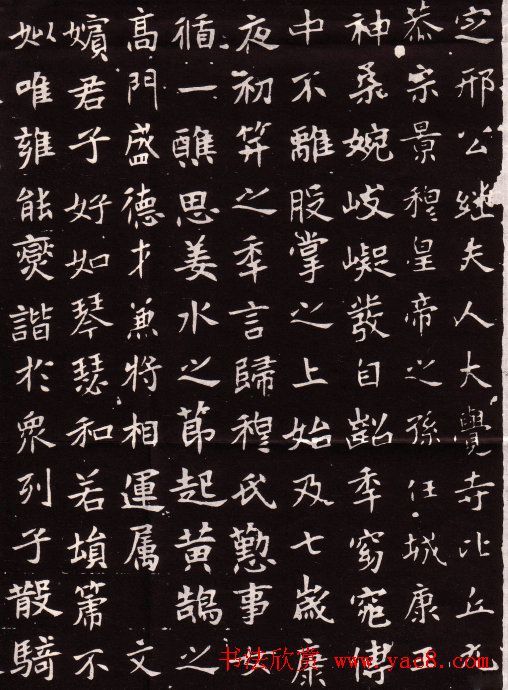 定邢公継夫人大覺寺比丘元
恭宗景穆皇帝之孫任城康王
神桑婉岐嶷發自齠季窈窕傳
中不離股掌之上始及七歲康
夜初笄之季言歸穆氏懃事
循一醮思姜水之節起黃鵠之
高門盛德才兼將相運属文
嬪君子好如琴瑟和若塤篪不
姒唯雍能燮諧於衆列子散騎
书法欣赏 www.yac8.com